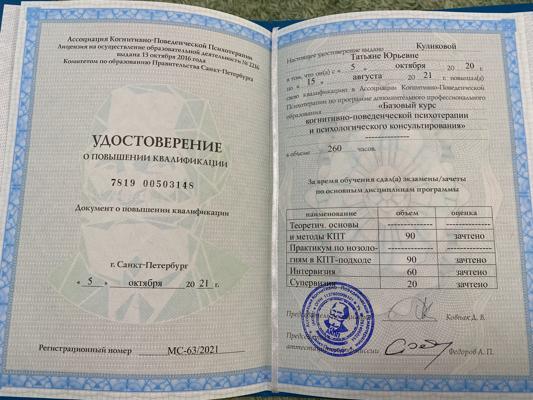 Ассоциация Когнитивно-Поведенческой Психотерапии
Лицензия на осуществление образовательной деятельности № 2216
выдана 13 октября 2016 года
Комитетом по образованию Правительства Санкт-Петербурга
УДОСТОВЕРЕНИЕ
О ПОВЫШЕНИИ КВАЛИФИКАЦИИ
7819 00503148
Документ о повышении квалификации
г. Санкт-Петербург
« 5 » октября 20 21 г.
Регистрационный номер МС-63/2021
Настоящее удостоверение выдано Куликовой
Татьяне Юрьевне
в том, что он(а) с « 5 » октября 20 20 г.
по « 15 » августа 20 21 г. повысил(а)
свою квалификацию в Ассоциации Когнитивно-Поведенческой
Психотерапии по программе дополнительного профессионального
образования «Базовый курс
когнитивно-поведенческой психотерапии
и психологического консультирования»
в объеме 260 часов.
За время обучения сдал(а) экзамены/зачеты
по основным дисциплинам программы
наименование объем оценка
Теоретич. основы
и методы КПТ 90 зачтено
Практикум по нозоло-
гиям в КПТ-подходе 90 зачтено
Интервизия 60 зачтено
Супервизия 20 зачтено
Ковпак Д. В.
Федоров А. П.